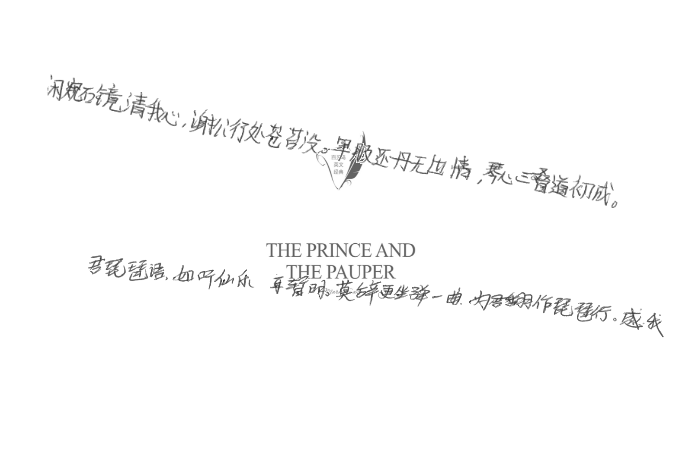 闲窥石镜清我心，谢公行处苍苔没。早服还丹无世情，琴心三叠道初成。
THE PRINCE AND
THE PAUPER
君琵琶语，如听仙乐耳暂明。莫辞更坐弹一曲，为君翻作琵琶行。感我